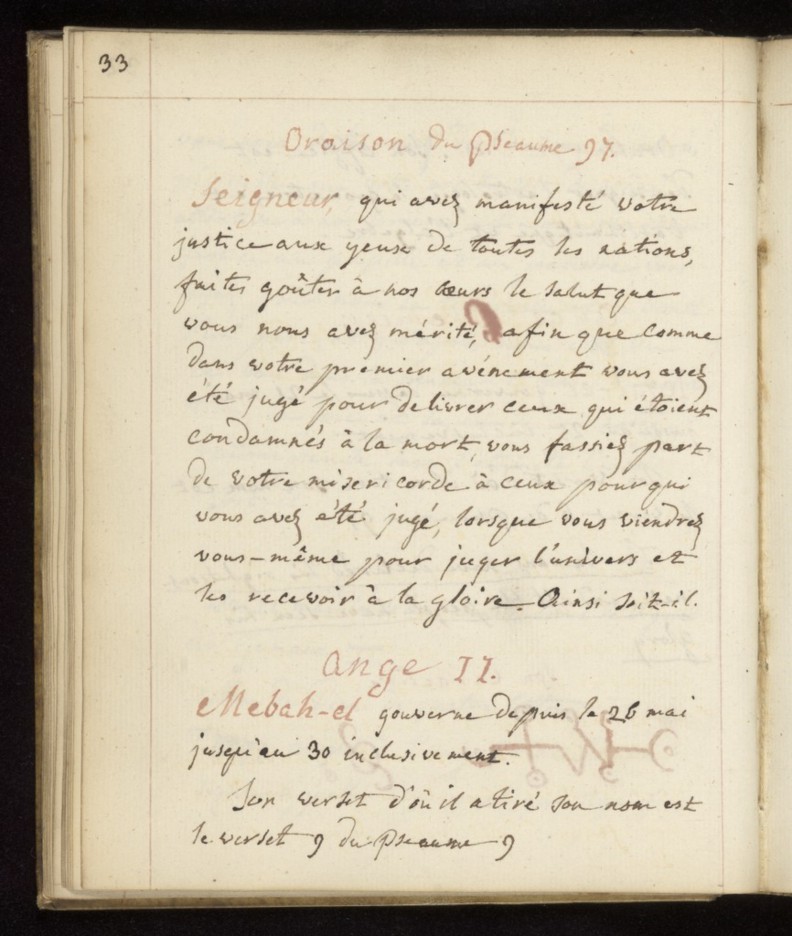 33
Oraison du Pseaume 97.
Seigneur, qui avez manifesté votre
justice aux yeux de toutes les nations,
faites goûter à nos cœurs le salut que
vous nous avez mérité, afin que comme
dans votre premier avénement vous avez
été jugé pour delivrer ceux qui étoient
condamnés à la mort, vous fassiez part
de votre misericorde à ceux pour qui
vous avez été jugé, lorsque vous viendrez
vous-même pour juger l'univers et
les recevoir à la gloire. Ainsi soit-il.
Ange II.
Mebah-el gouverne depuis le 26 mai
jusqu'au 30 inclusivement.
Son verset d'où il a tiré son nom est
le verset 9 du Pseaume 9